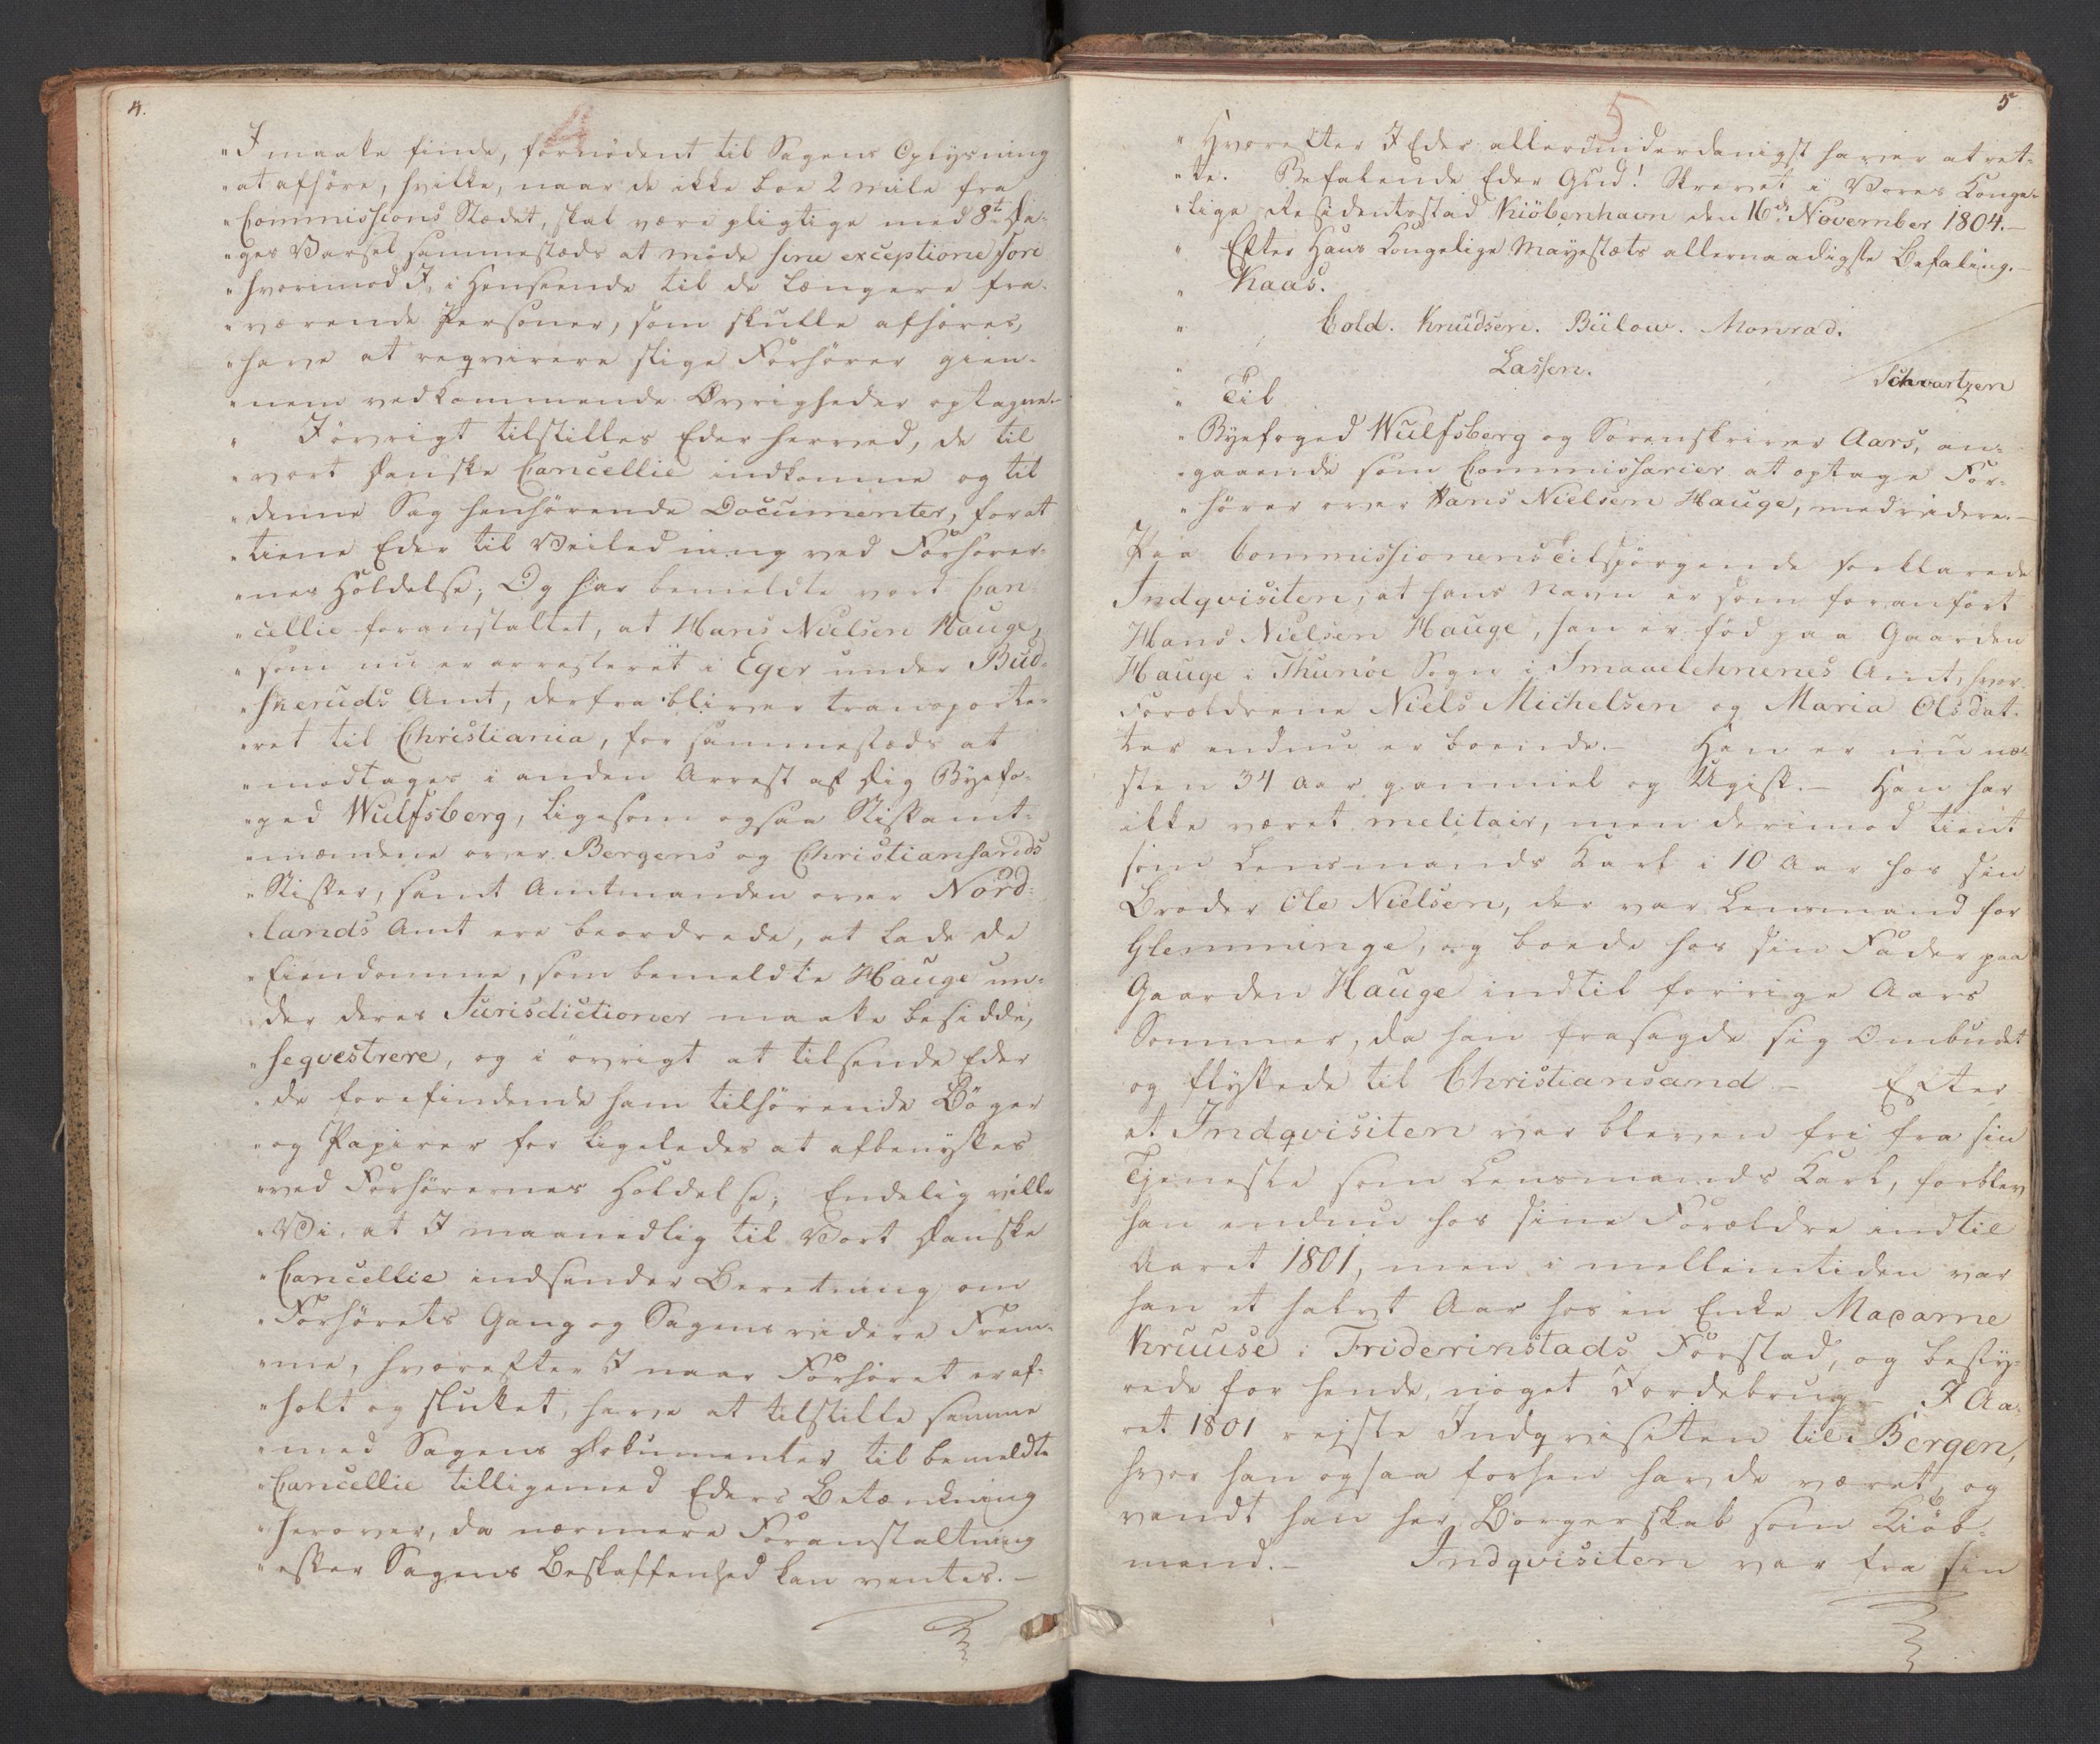 4.
4
"I maatte finde, fornödent til Sagens Oplysning
"at afhöre, hvilke, naar de ikke boe 2 Miile fra
"Commissions Stædet, skal være pligtige med 8te Da-
"ges Varsel sammestæds at möde sine exceptione fori
"hvorimod I, i Henseende til de længere fra-
"værende Personer, som skulle afhöres,
"have at reqvirere slige Forhörer gien-
"nem vedkommende Øvrigheder optagne.-
" I övrigt tilstilles Eder herved, de til
"vort Danske Cancellie indkomne og til
"denne Sag henhörende Documenter, for at
"tiene Eder til Veiledning ved Forhörer-
"nes Holdelse; Og har bemeldte vort Can-
"cellie foranstaltet, at Hans Nielsen Hauge,
"som nu er arresteret i Eger under Bud-
"sheruds Amt, derfra bliver transporte-
"ret til Christiania, for sammestæds at
"modtages i anden Arrest af Dig Byefo-
"ged Wulfsberg, ligesom ogsaa Stiftamt-
"mændene over Bergens og Christiansands
"Stifter, samt Amtmanden over Nord-
"lands Amt ere beordrede, at lade de
"Eiendomme, som bemeldte Hauge un-
"der deres Jurisdictioner maatte besidde,
"seqvestrere, og i övrigt at tilsende Eder
"de forefindende ham tilhörende Böger
"og Papirer for ligeledes at afbenyttes
"ved Forhörernes Holdelse; Endelig ville
"Vi, at I maanedlig til Vort Danske
"Cancellie indsender Beretning om
"Forhörets Gang og Sagens videre Frem-
"me, hvorefter I naar Forhöret er af-
"holt og sluttet, have at tilstille samme
"med Sagens Dokumenter til bemeldte
"Cancellie tilligemed Eders Betænkning
"herover, da nærmere Foranstaltning
"efter Sagens Beskaffenhed kan ventes.-
5
5
"Hvorefter I Eder allerunderdanigst haver at ret-
"te. Befalende Eder Gud! Skrevet i Vores Konge-
"lige Residentsstad Kiöbenhavn den 16de November 1804.-
" Efter Hans Kongelige Mayestæts allernaadigste Befaling.-
" Kaas.
" Cold. Knudsen. Bülow. Monrad.
" Lassen. Schwartzen
" Til
"Byefoged Wulfsberg og Sorenskriver Aars, an-
"gaaende som Commissarier at optage For-
"hörer over Hans Nielsen Hauge, med videre.-
Paa Commissionens Tilspörgende forklarede
Indqvisiten, at hans Navn er som foranfört
Hans Nielsen Hauge, han er föd paa Gaarden
Hauge i Thunöe Sogn i Smaaelehnenes Amt, hvor
Forældrene Niels Michelsen og Maria Olsdat-
ter endnu er boende.- Han er nu næ-
sten 34 Aar gammel og Ugift.- Han har
ikke været melitair, men derimod tient
som Lensmands Karl i 10 Aar hos sin
Broder Ole Nielsen, der var Lensmand for
Glemminge, og boede hos sin Fader paa
Gaarden Hauge indtil forrige Aars
Sommer, da han frasagde sig Ombudet
og flyttede til Christiansand - Efter
at Indqvisiten var bleven fri fra sin
Tjeneste som Lensmands Karl, forblev
han endnu hos sine Forældre indtil
Aaret 1801, men i mellemtiden var
han et halvt Aar hos en Enke Madame
Kruuse i Friderichstads Forstad, og besty-
rede for hende noget Jordebrug - I Aa-
ret 1801 rejste Indqvisiten til Bergen,
hvor han ogsaa forhen havde været, og
vandt han her Borgerskab som Kiöb-
mand.- Indqvisiten var fra sin